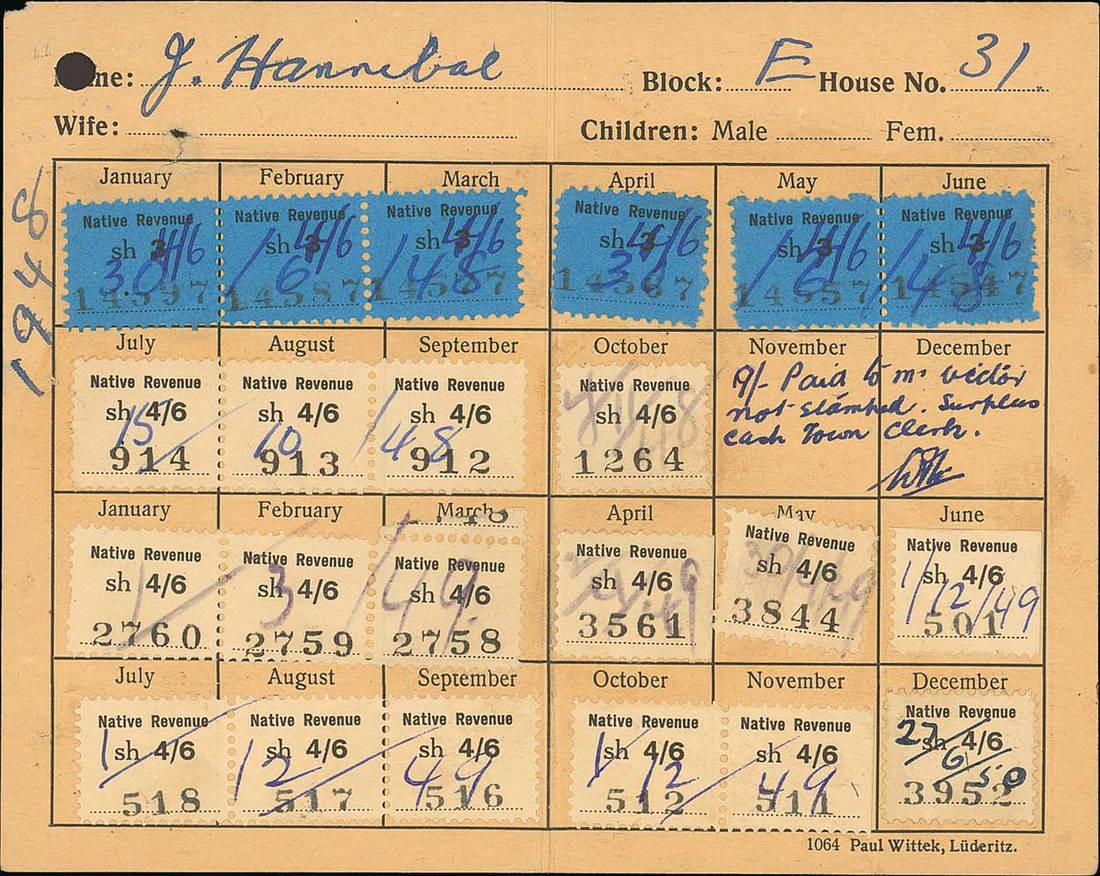 me: J. Hannibal Block: E House No. 31.
Wife: Children: Male Fem.
1948
January February March April May June
Native Revenue Native Revenue Native Revenue Native Revenue Native Revenue Native Revenue
sh 3 4/6 sh 3 4/6 sh 3 4/6 sh 4/6 sh 3 4/6 sh 3 4/6
30 / 6 / 48 30 / 6 / 48
14597 14587 14577 14567 14557 14547
July August September October November December
Native Revenue Native Revenue Native Revenue Native Revenue
sh 4/6 sh 4/6 sh 4/6 sh 4/6
15 / 10 / 48
914 913 912 1264
9/- Paid to Mr Victor
not stamped. Surplus
cash Town Clerk.
January February March April May June
Native Revenue Native Revenue Native Revenue Native Revenue Native Revenue Native Revenue
sh 4/6 sh 4/6 sh 4/6 sh 4/6 sh 4/6 sh 4/6
1 / 3 / 49 1/12/49
2760 2759 2758 3561 3844 501
July August September October November December
Native Revenue Native Revenue Native Revenue Native Revenue Native Revenue Native Revenue
sh 4/6 sh 4/6 sh 4/6 sh 4/6 sh 4/6 sh 4/6
1 / 12 / 49 1 / 12 / 49 27/6/50
518 517 516 512 511 3952
1064 Paul Wittek, Lüderitz.